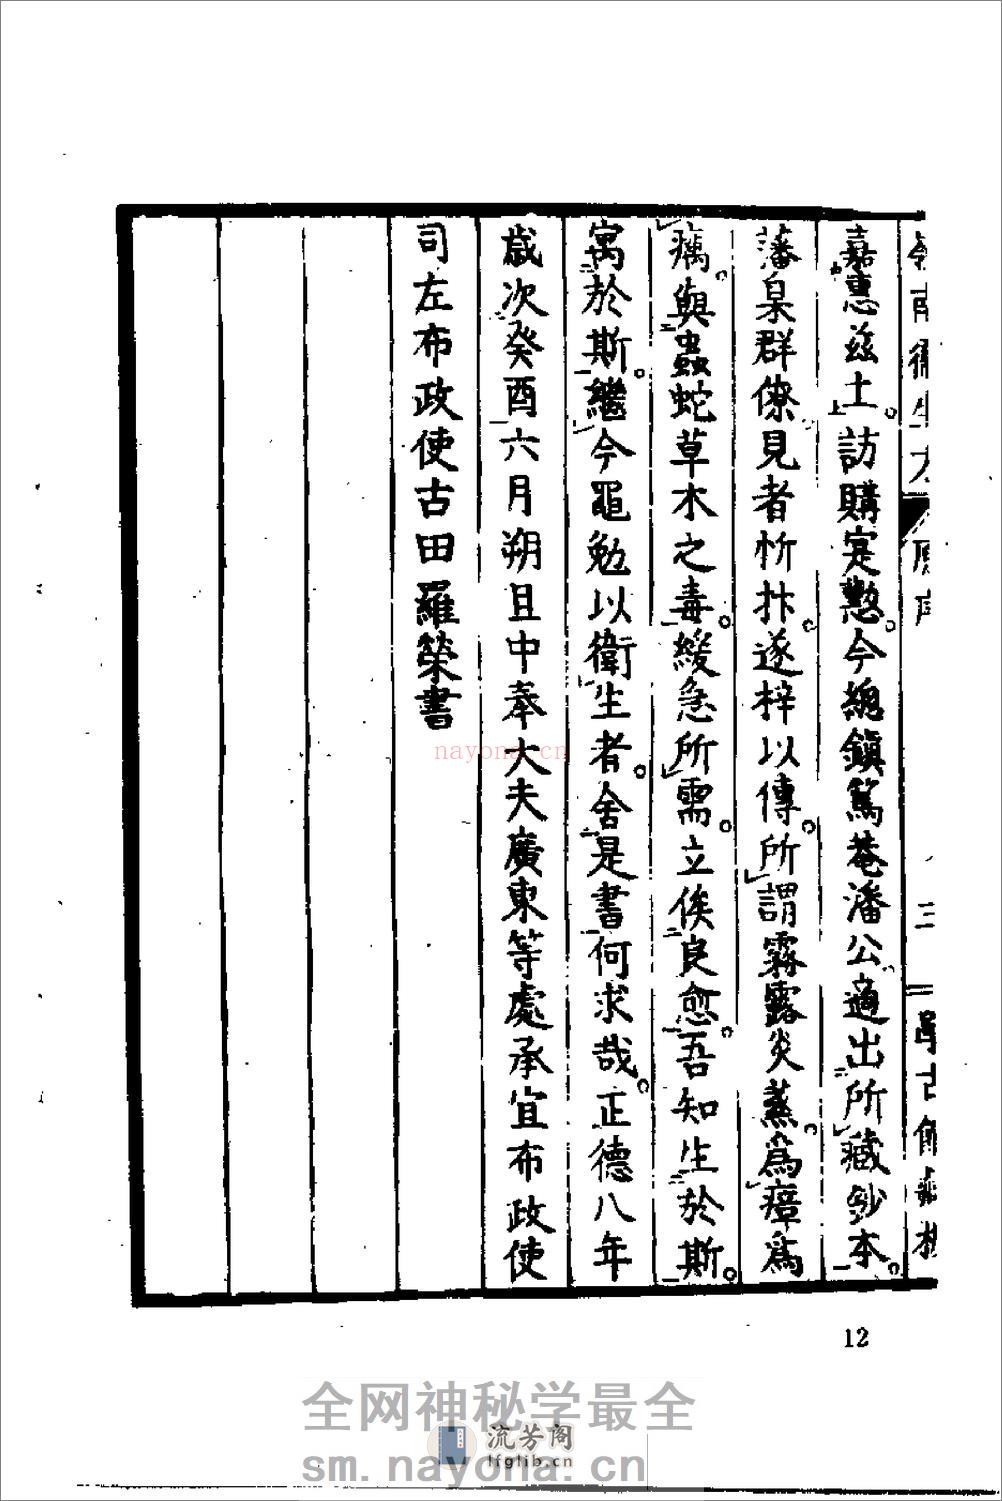 嘉惠茲土。訪購寔懃。今總鎮篤菴潘公。適出所藏鈔本。
藩臬群僚見者忻抃。遂梓以傳。所謂霧露炎蒸。爲瘴爲
癘。與蟲蛇草木之毒。緩急所需。立俟良愈。吾知生於斯。
寓於斯。繼今黽勉以衛生者。舍是書何求哉。正德八年
歲次癸酉六月朔旦中奉大夫廣東等處承宣布政使
司左布政使古田羅榮書
三
12
nayona.cn
全网神秘学最全
流芳阁
lfglib.cn
sm.nayona.cn